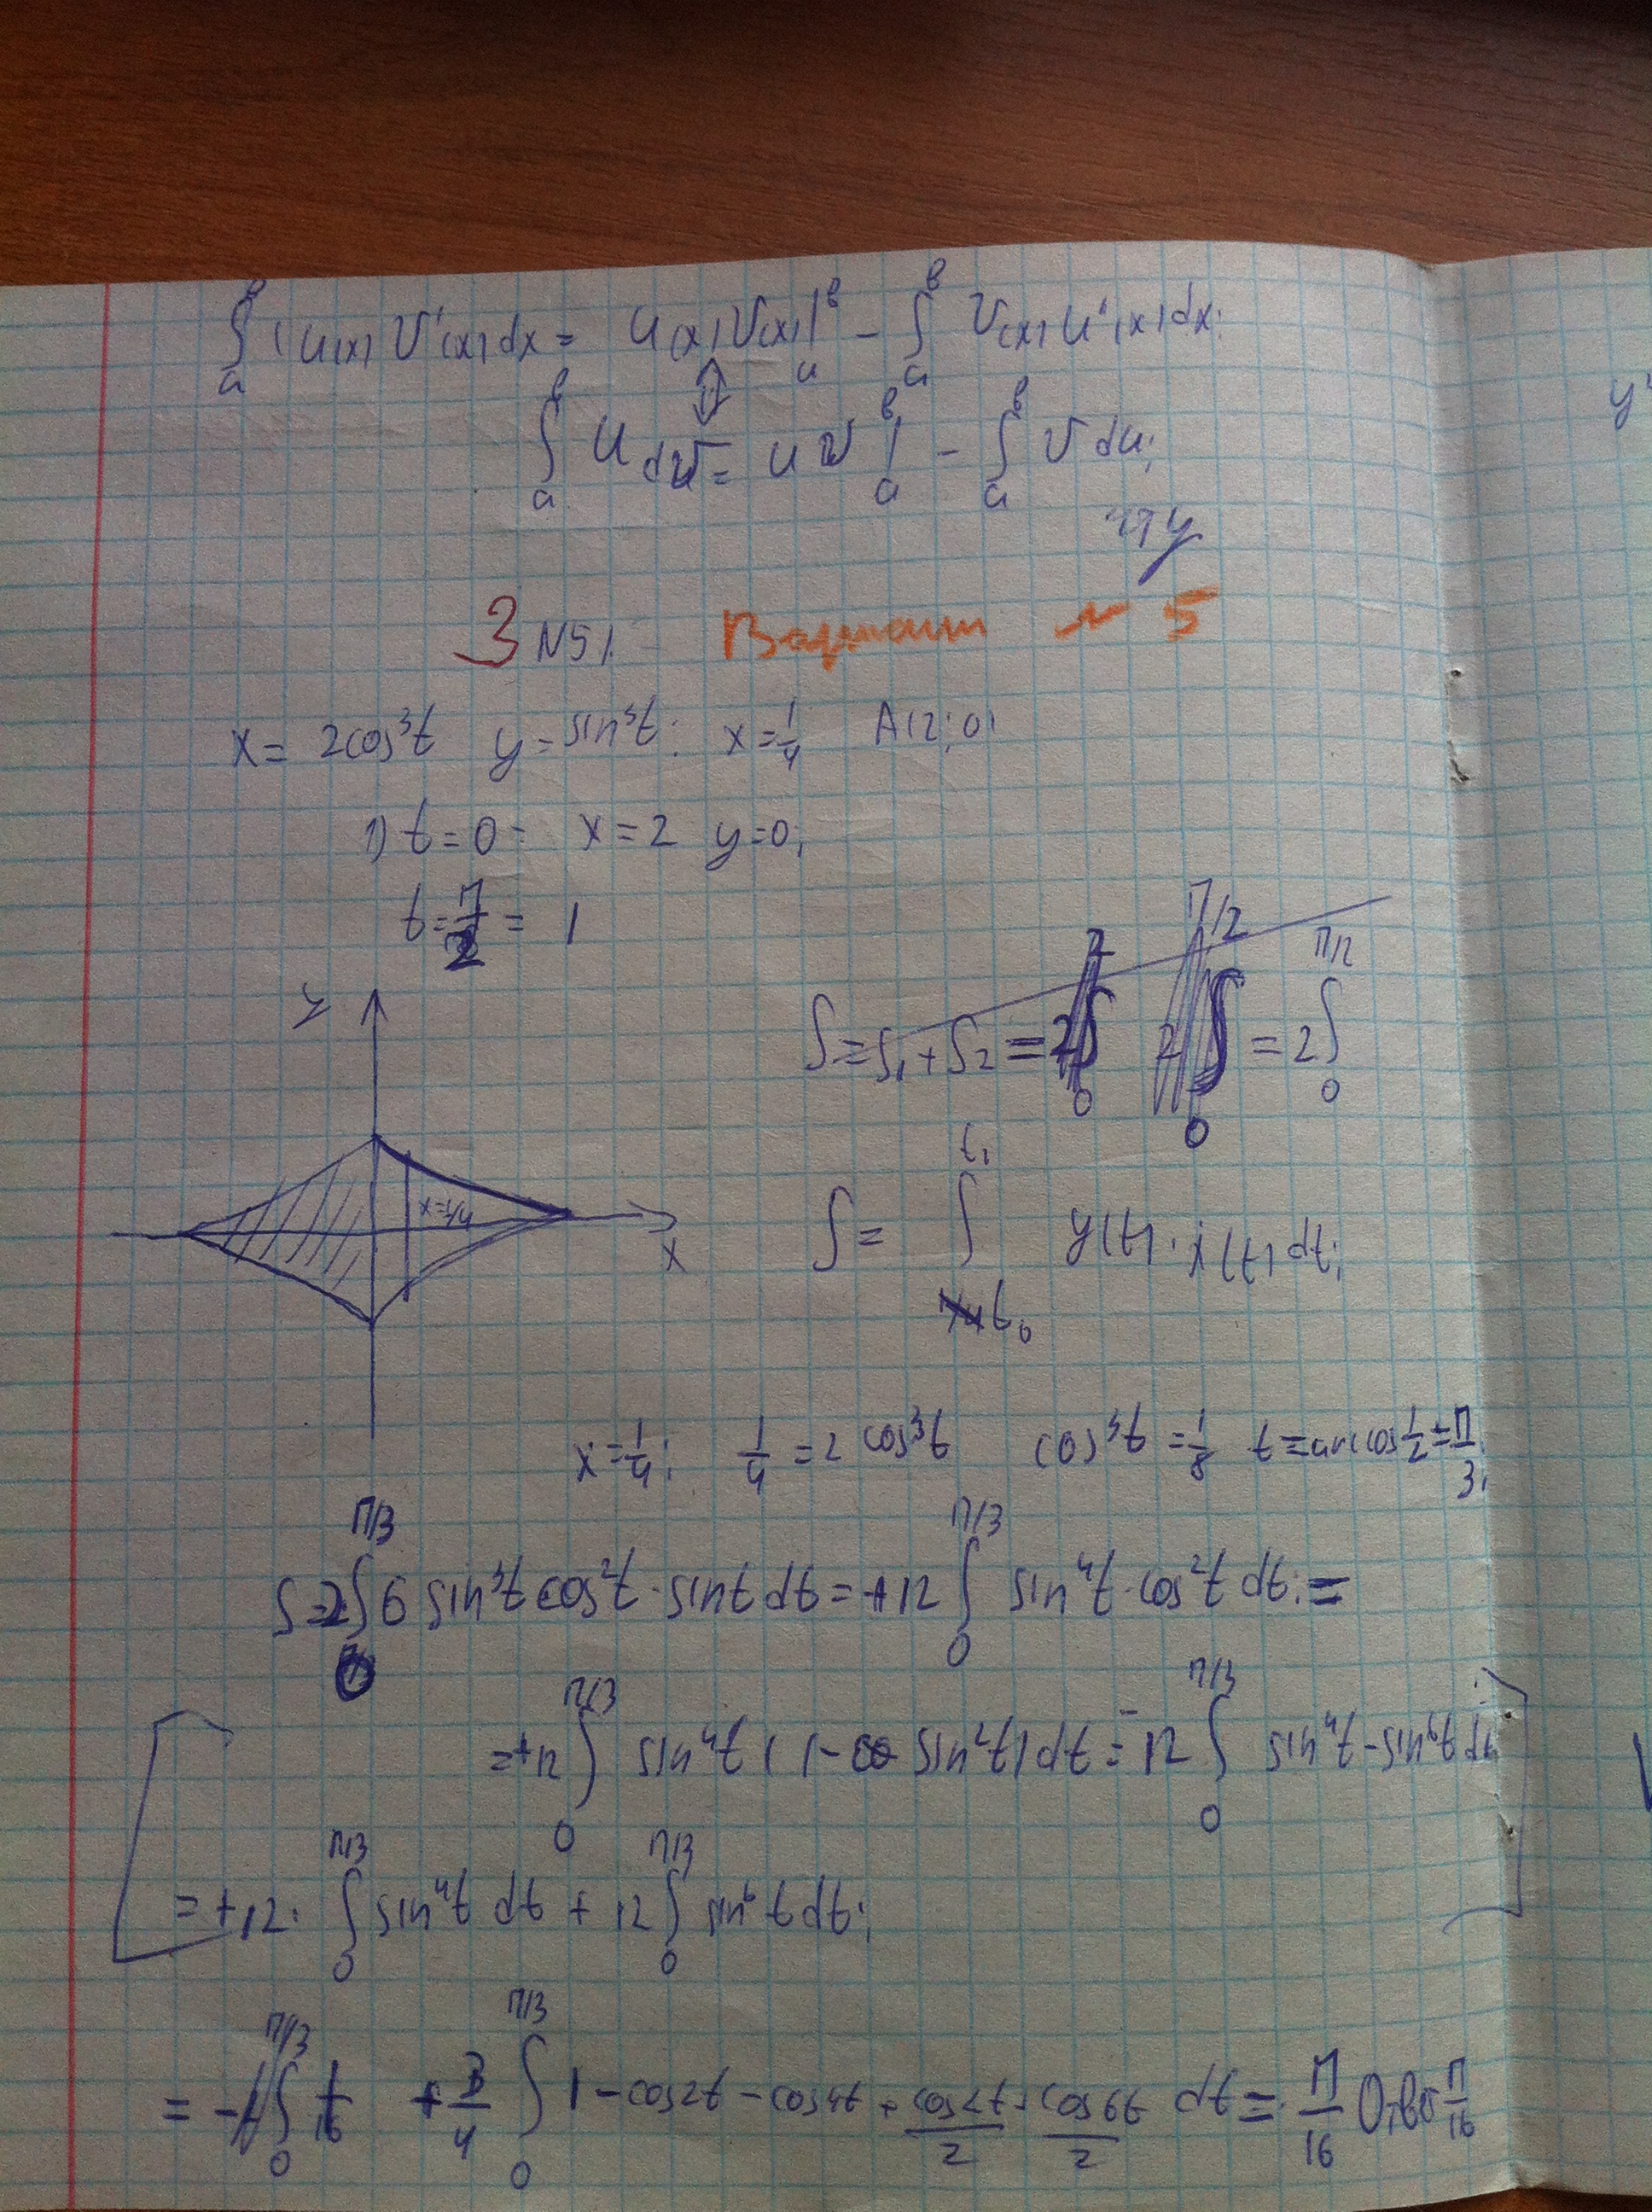 ∫ₐᵇ (u(x) v'(x) dx = u(x) v(x)|ₐᵇ − ∫ₐᵇ v(x) u'(x) dx;
⇕
∫ₐᵇ u dv = uv|ₐᵇ − ∫ₐᵇ v du;
3 N51. Вариант № 5
x = 2cos³t y = sin³t; x = 1/4 A(2; 0)
1) t = 0 - x = 2 y = 0;
t = π/2 = 1
y
S = S₁ + S₂ = = 2 ∫₀^(π/2)
x = 1/4
x
S = ∫_(t₀)^(t₁) y(t) · ẋ(t) dt;
x = 1/4; 1/4 = 2 cos³t cos³t = 1/8 t = arccos 1/2 = π/3;
S = 2 ∫₀^(π/3) 6 sin³t cos²t · sint dt = +12 ∫₀^(π/3) sin⁴t · cos²t dt; =
= +12 ∫₀^(π/3) sin⁴t (1 − sin²t) dt = 12 ∫₀^(π/3) sin⁴t − sin⁶t dt
= +12 · ∫₀^(π/3) sin⁴t dt + 12 ∫₀^(π/3) sin⁶t dt;
= + 3/4 ∫₀^(π/3) 1 − cos2t − cos4t + cos2t/2 + cos6t/2 dt = π/16 Ответ π/16